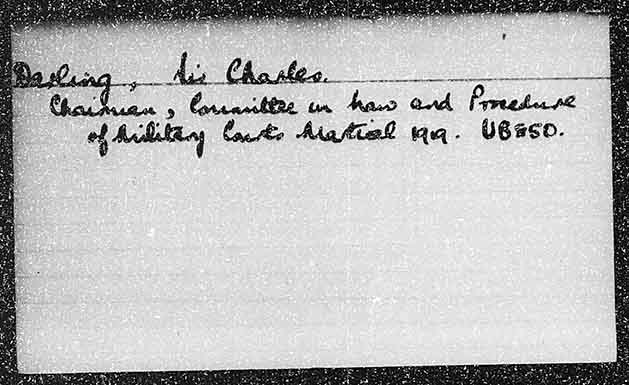 Darling, Sir Charles.
Chairman, Committee on Law and Procedure
of Military Courts Martial 1919. UB850.